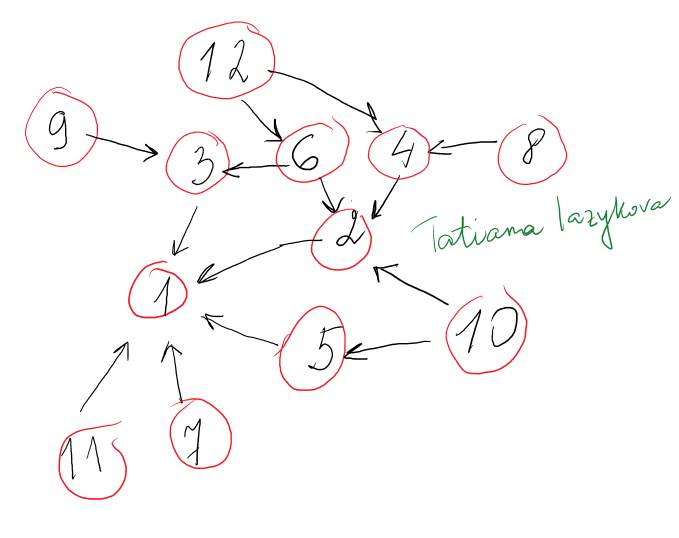 12
9
3
6
4
8
2
Tatiana Iazykova
1
5
10
11
7